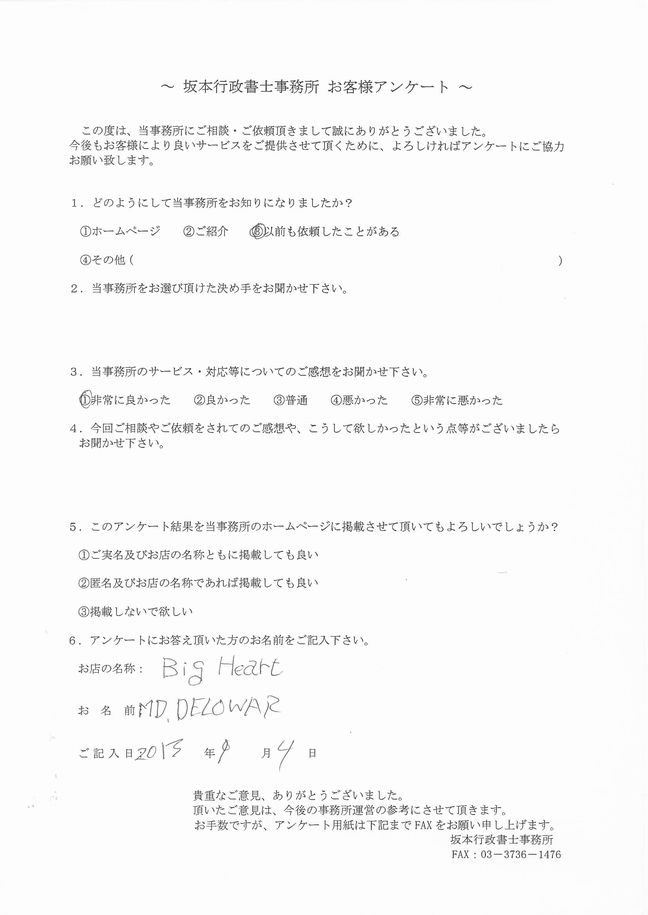 ～ 坂本行政書士事務所 お客様アンケート ～
この度は、当事務所にご相談・ご依頼頂きまして誠にありがとうございました。
今後もお客様により良いサービスをご提供させて頂くために、よろしければアンケートにご協力
お願い致します。
１．どのようにして当事務所をお知りになりましたか？
①ホームページ ②ご紹介 ③以前も依頼したことがある
④その他（ ）
２．当事務所をお選び頂けた決め手をお聞かせ下さい。
３．当事務所のサービス・対応等についてのご感想をお聞かせ下さい。
①非常に良かった ②良かった ③普通 ④悪かった ⑤非常に悪かった
４．今回ご相談やご依頼をされてのご感想や、こうして欲しかったという点等がございましたら
お聞かせ下さい。
５．このアンケート結果を当事務所のホームページに掲載させて頂いてもよろしいでしょうか？
①ご実名及びお店の名称ともに掲載しても良い
②匿名及びお店の名称であれば掲載しても良い
③掲載しないで欲しい
６．アンケートにお答え頂いた方のお名前をご記入下さい。
お店の名称： Big Heart
お 名 前 MD. DELOWAR
ご記入日 2013 年 9 月 4 日
貴重なご意見、ありがとうございました。
頂いたご意見は、今後の事務所運営の参考にさせて頂きます。
お手数ですが、アンケート用紙は下記まで FAX をお願い申し上げます。
坂本行政書士事務所
FAX：03－3736－1476